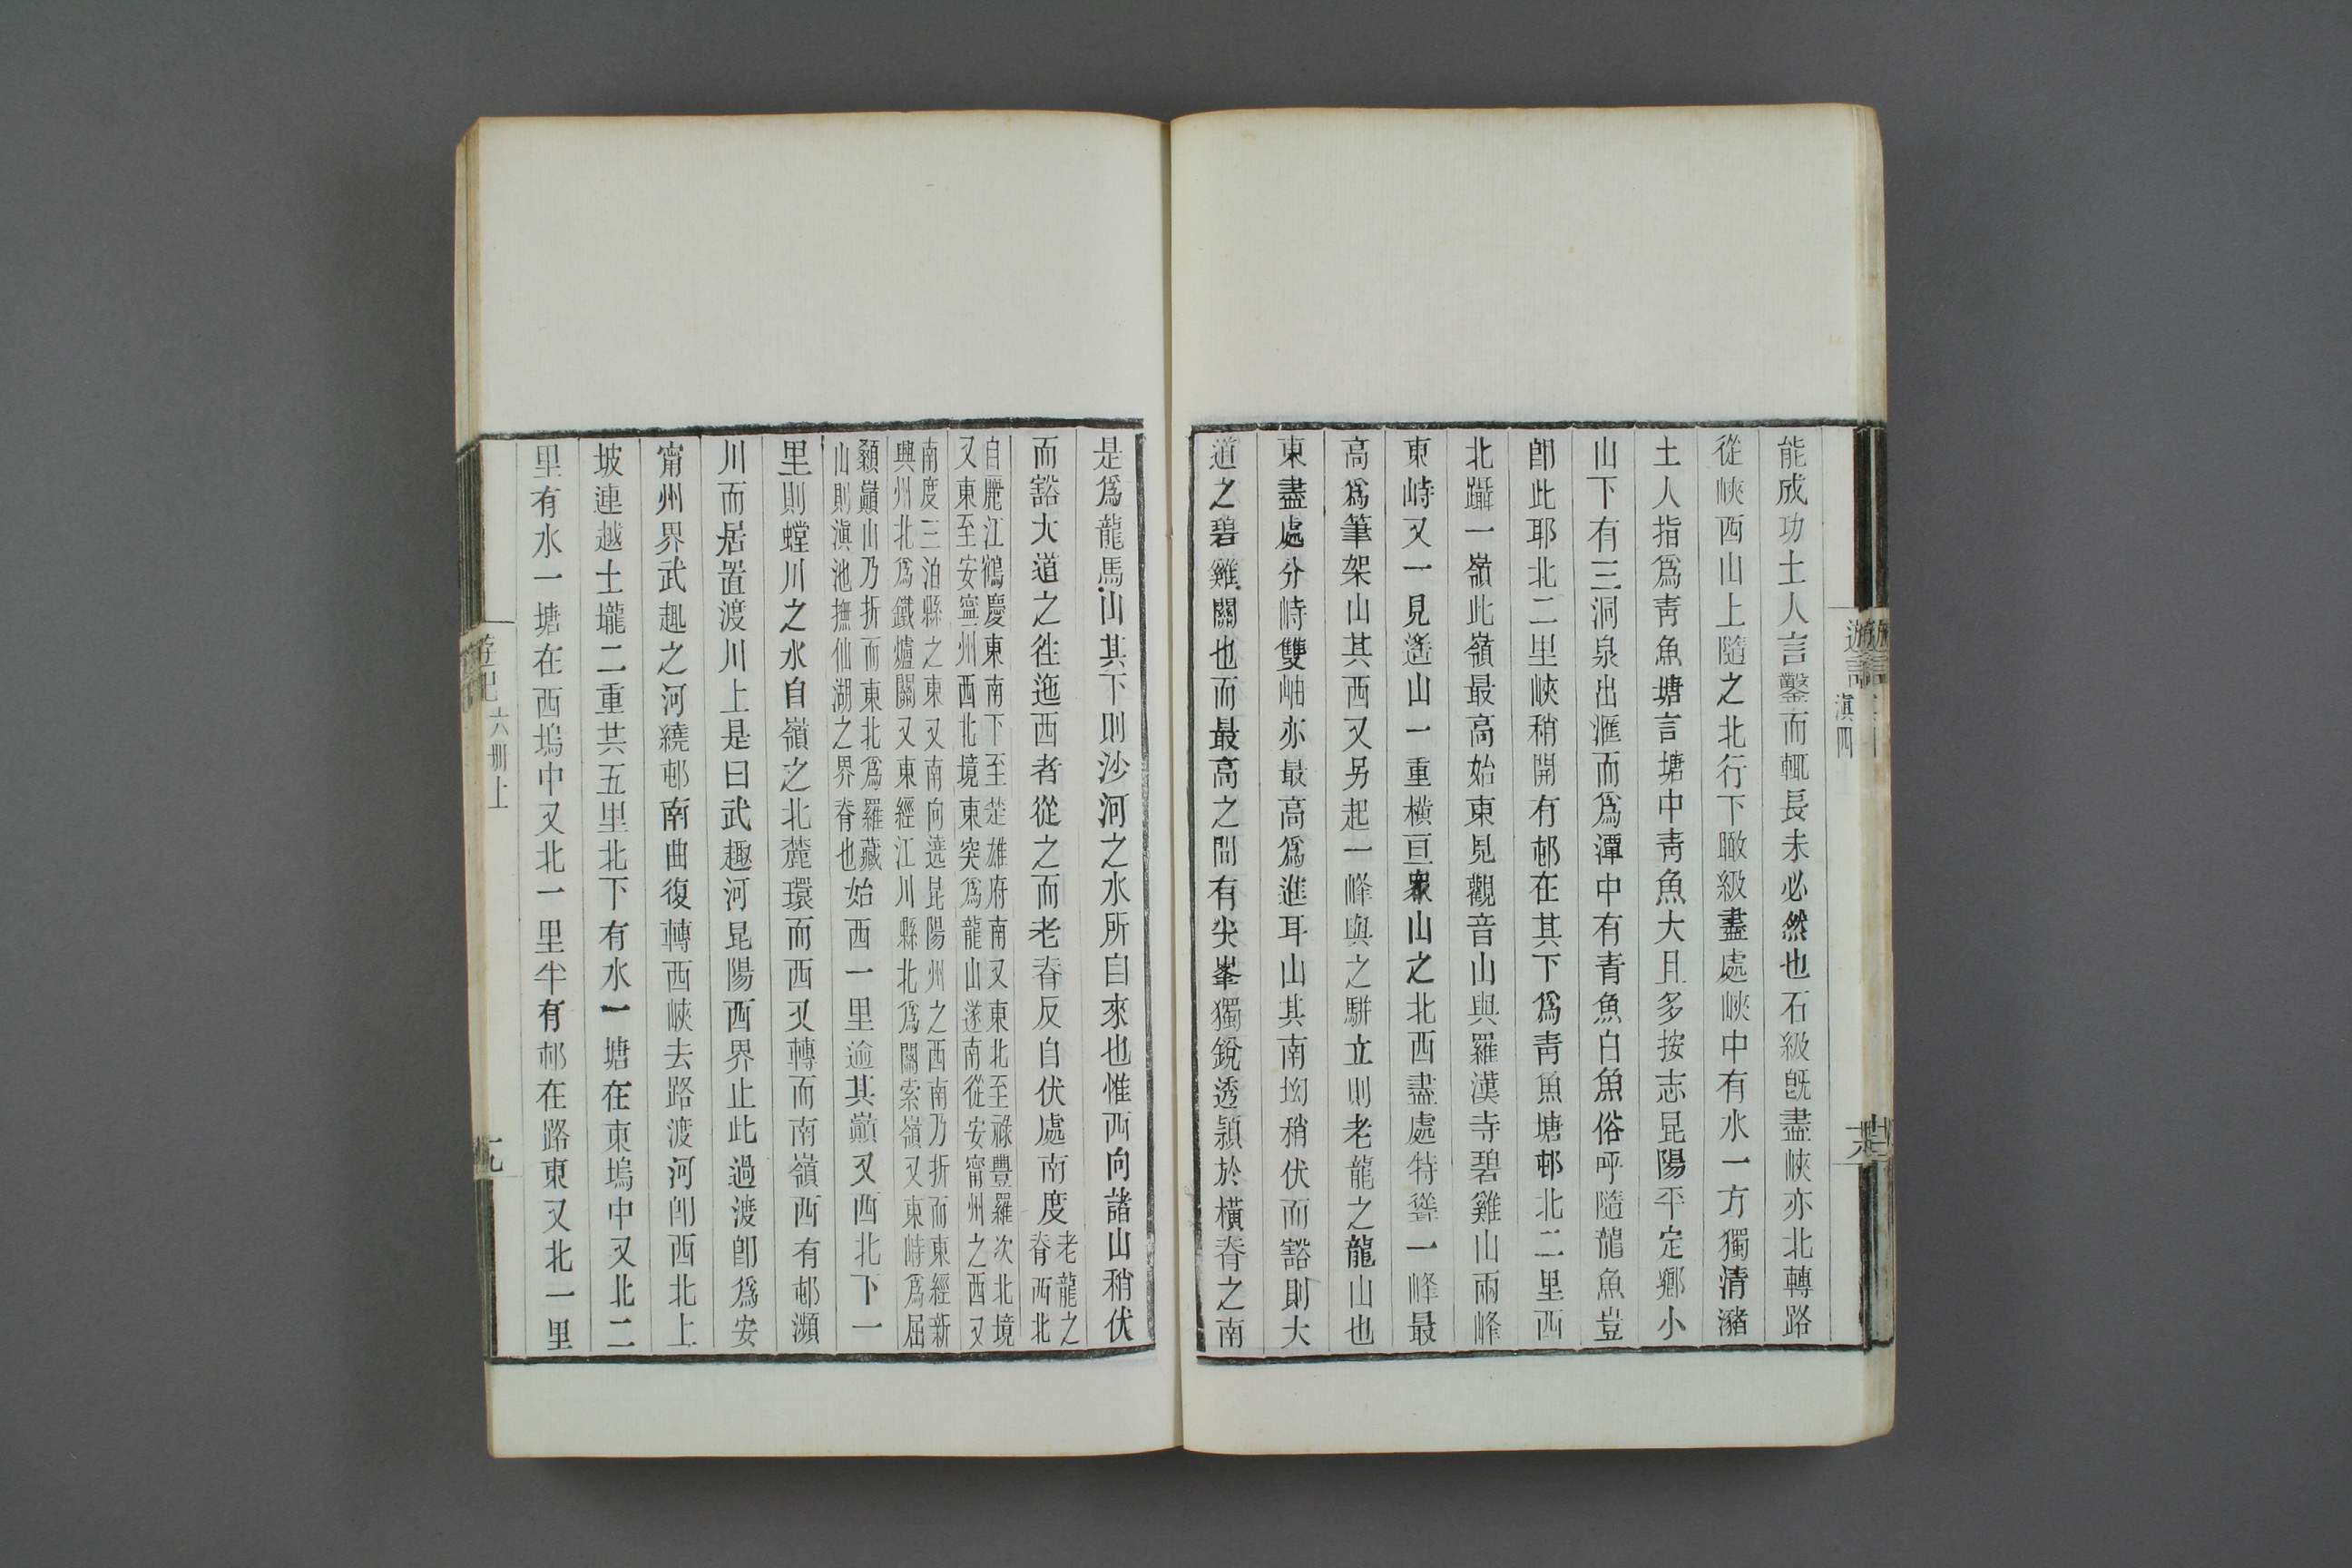 能成功土人言鑿而輒長未必然也石級旣盡峽亦北轉路
從峽西山上隨之北行下瞰級盡處峽中有水一方獨清瀦
土人指爲靑魚塘言塘中靑魚大且多按志昆陽平定鄉小
山下有三洞泉出滙而爲潭中有青魚白魚俗呼隨龍魚豈
卽此耶北二里峽稍開有邨在其下爲靑魚塘邨北二里西
北躡一嶺此嶺最高始東見觀音山與羅漢寺碧雞山兩峰
東峙又一見遙山一重橫亘衆山之北西盡處特聳一峰最
高爲筆架山其西又另起一峰與之駢立則老龍之龍山也
東盡處分峙雙岫亦最高爲進耳山其南坳稍伏而豁則大
道之碧雞關也而最高之間有尖峯獨銳透潁於橫脊之南
是爲龍馬山其下則沙河之水所自來也惟西向諸山稍伏
而豁大道之徃迤西者從之而老脊反自伏處南度老龍之
脊西北
自麗江鶴慶東南下至楚雄府南又東北至祿豐羅次北境
又東至安寧州西北境東突爲龍山遂南從安甯州之西又
南度三泊縣之東又南向遶昆陽州之西南乃折而東經新
興州北爲鐵爐關又東經江川縣北爲關索嶺又東峙爲屈
顙巔山乃折而東北爲羅藏
山則滇池撫仙湖之界脊也始西一里逾其巔又西北下一
里則螳川之水自嶺之北麓環而西又轉而南嶺西有邨瀕
川而居置渡川上是曰武趣河昆陽西界止此過渡卽爲安
甯州界武趣之河繞邨南曲復轉西峽去路渡河卽西北上
坡連越土壠二重共五里北下有水一塘在東塢中又北二
里有水一塘在西塢中又北一里半有邨在路東又北一里
遊記
滇四
遊記
六册上